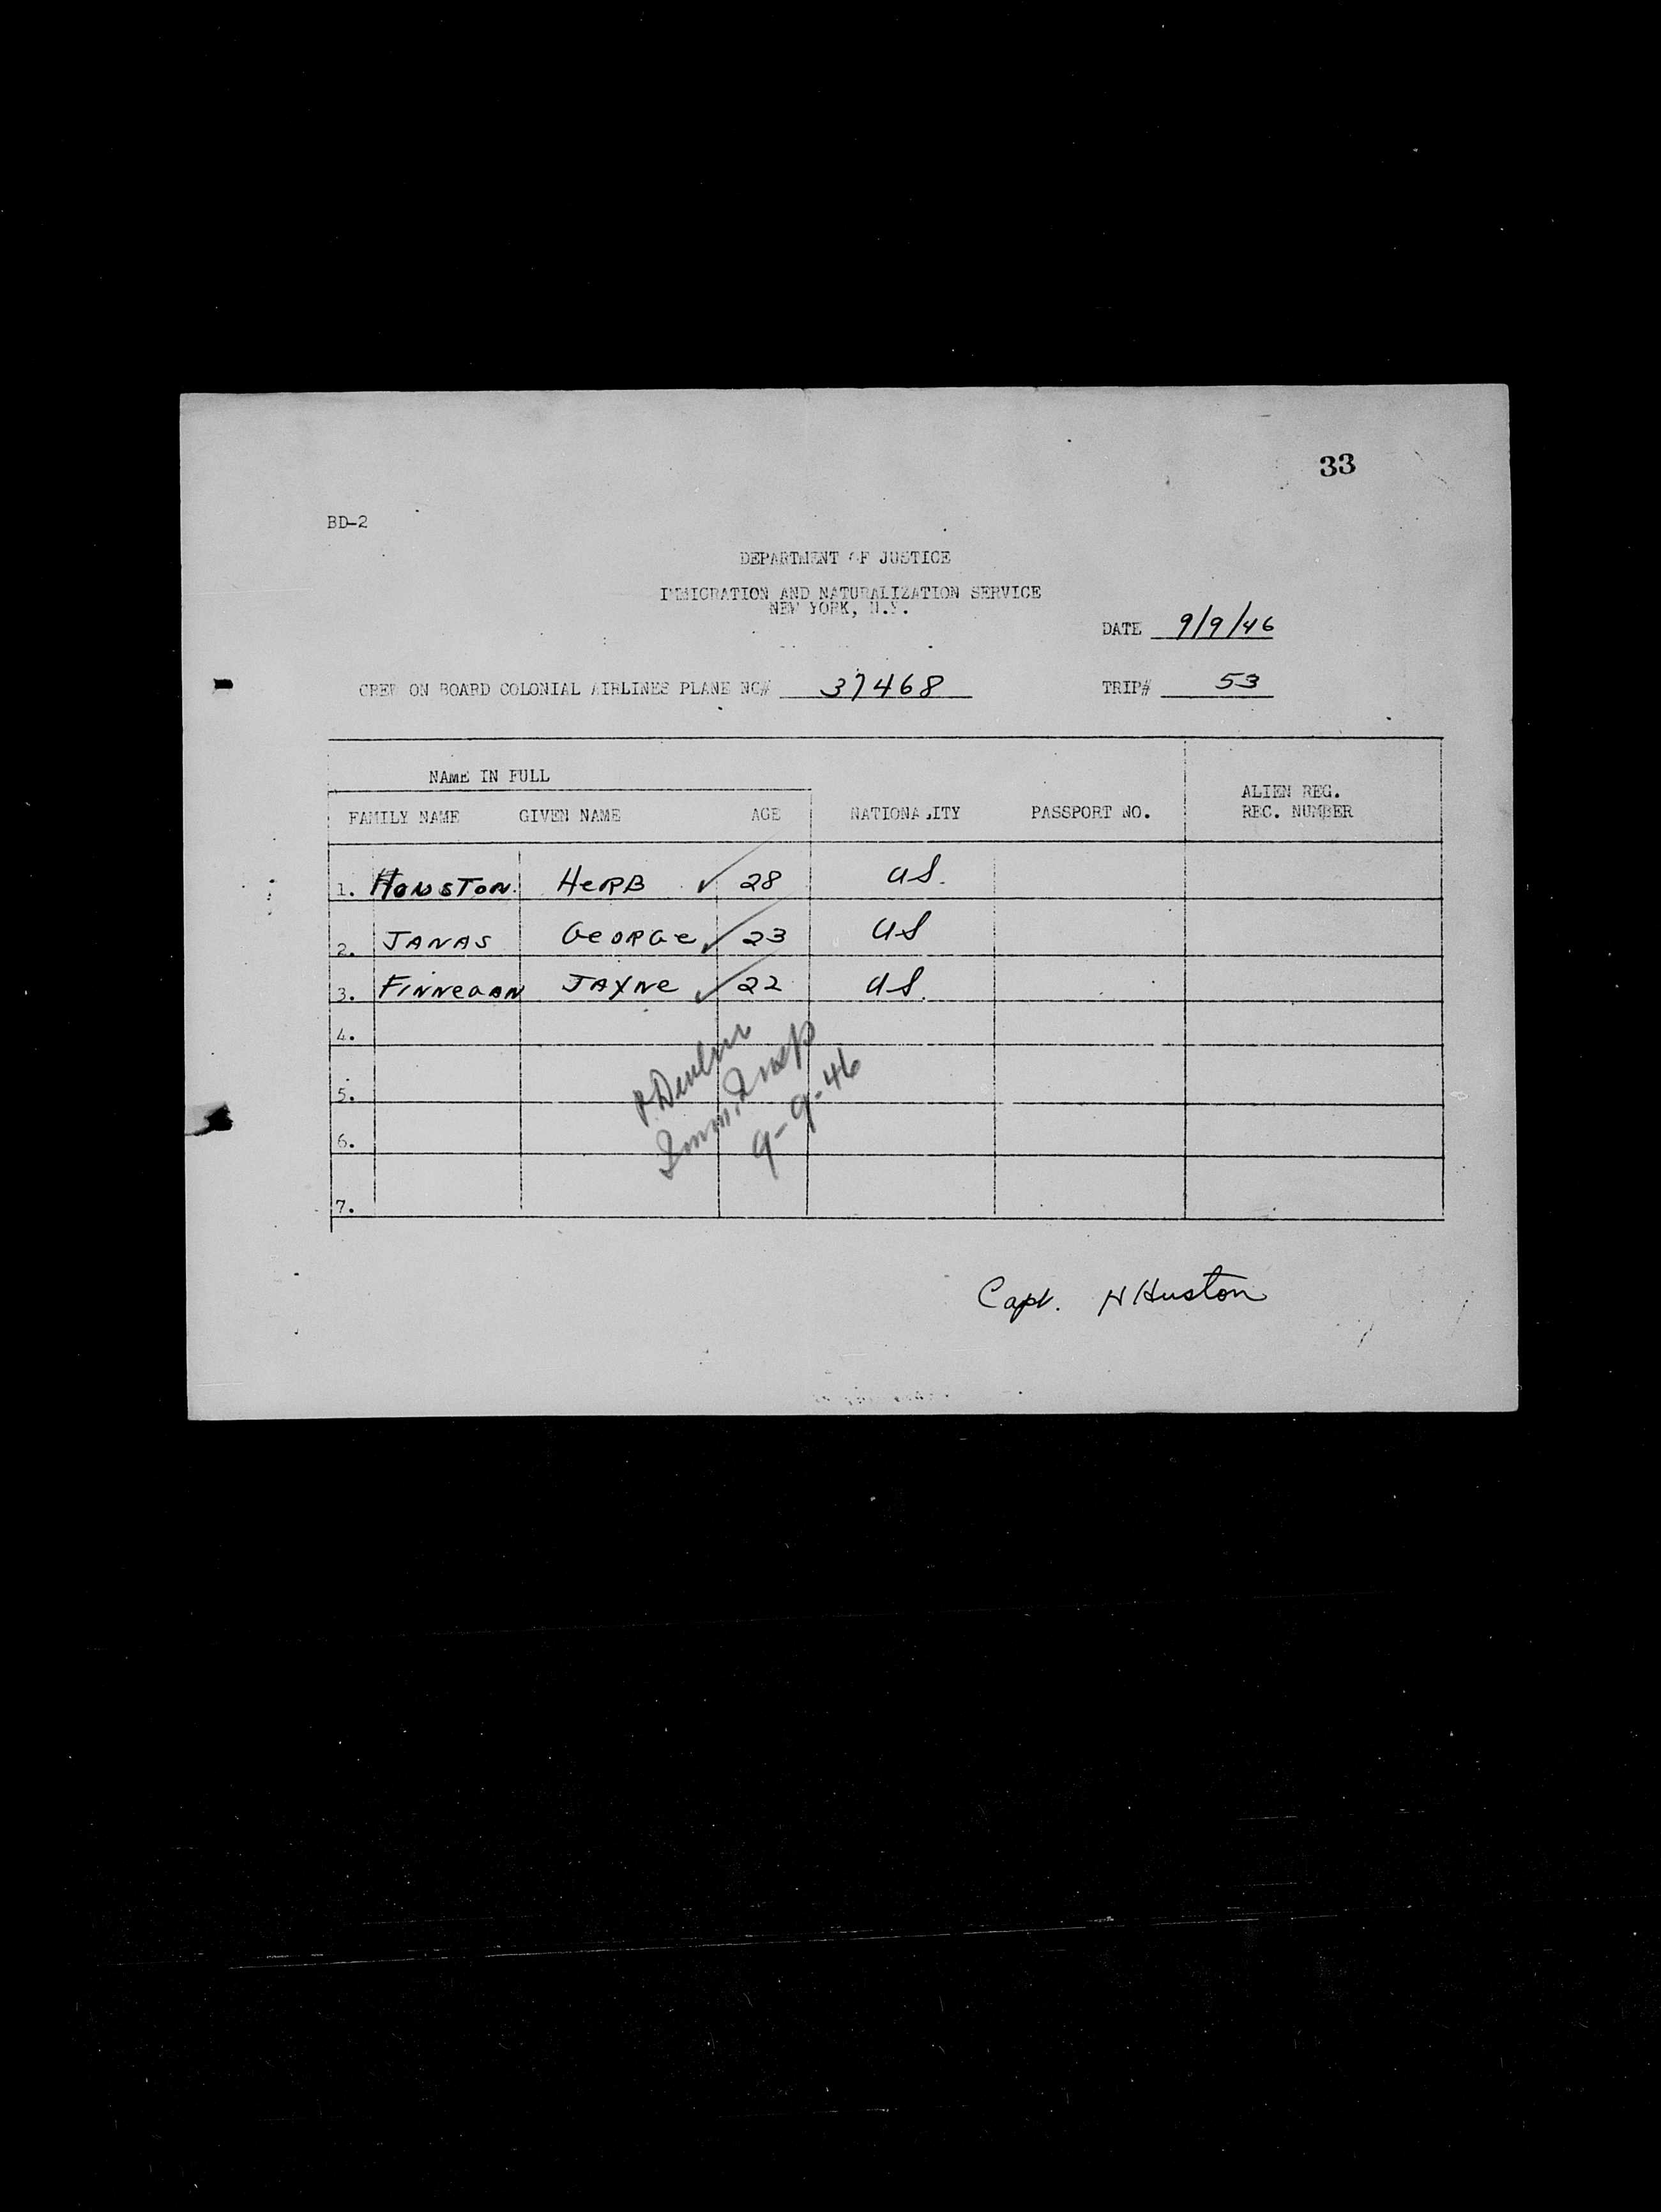 33
BD-2
DEPARTMENT OF JUSTICE
IMMIGRATION AND NATURALIZATION SERVICE
NEW YORK, N.Y.
DATE 9/9/46
CREW ON BOARD COLONIAL AIRLINES PLANE NC# 37468 TRIP# 53
NAME IN FULL
FAMILY NAME GIVEN NAME AGE NATIONALITY PASSPORT NO. ALIEN REG. REC. NUMBER
1. HOUSTON HERB ✓ 28 US.
2. JANAS GEORGE ✓ 23 US
3. FINNEGAN JAYNE ✓ 22 US.
4.
5.
6.
7.
Imm. Insp
9-9-46
Capt. H Huston